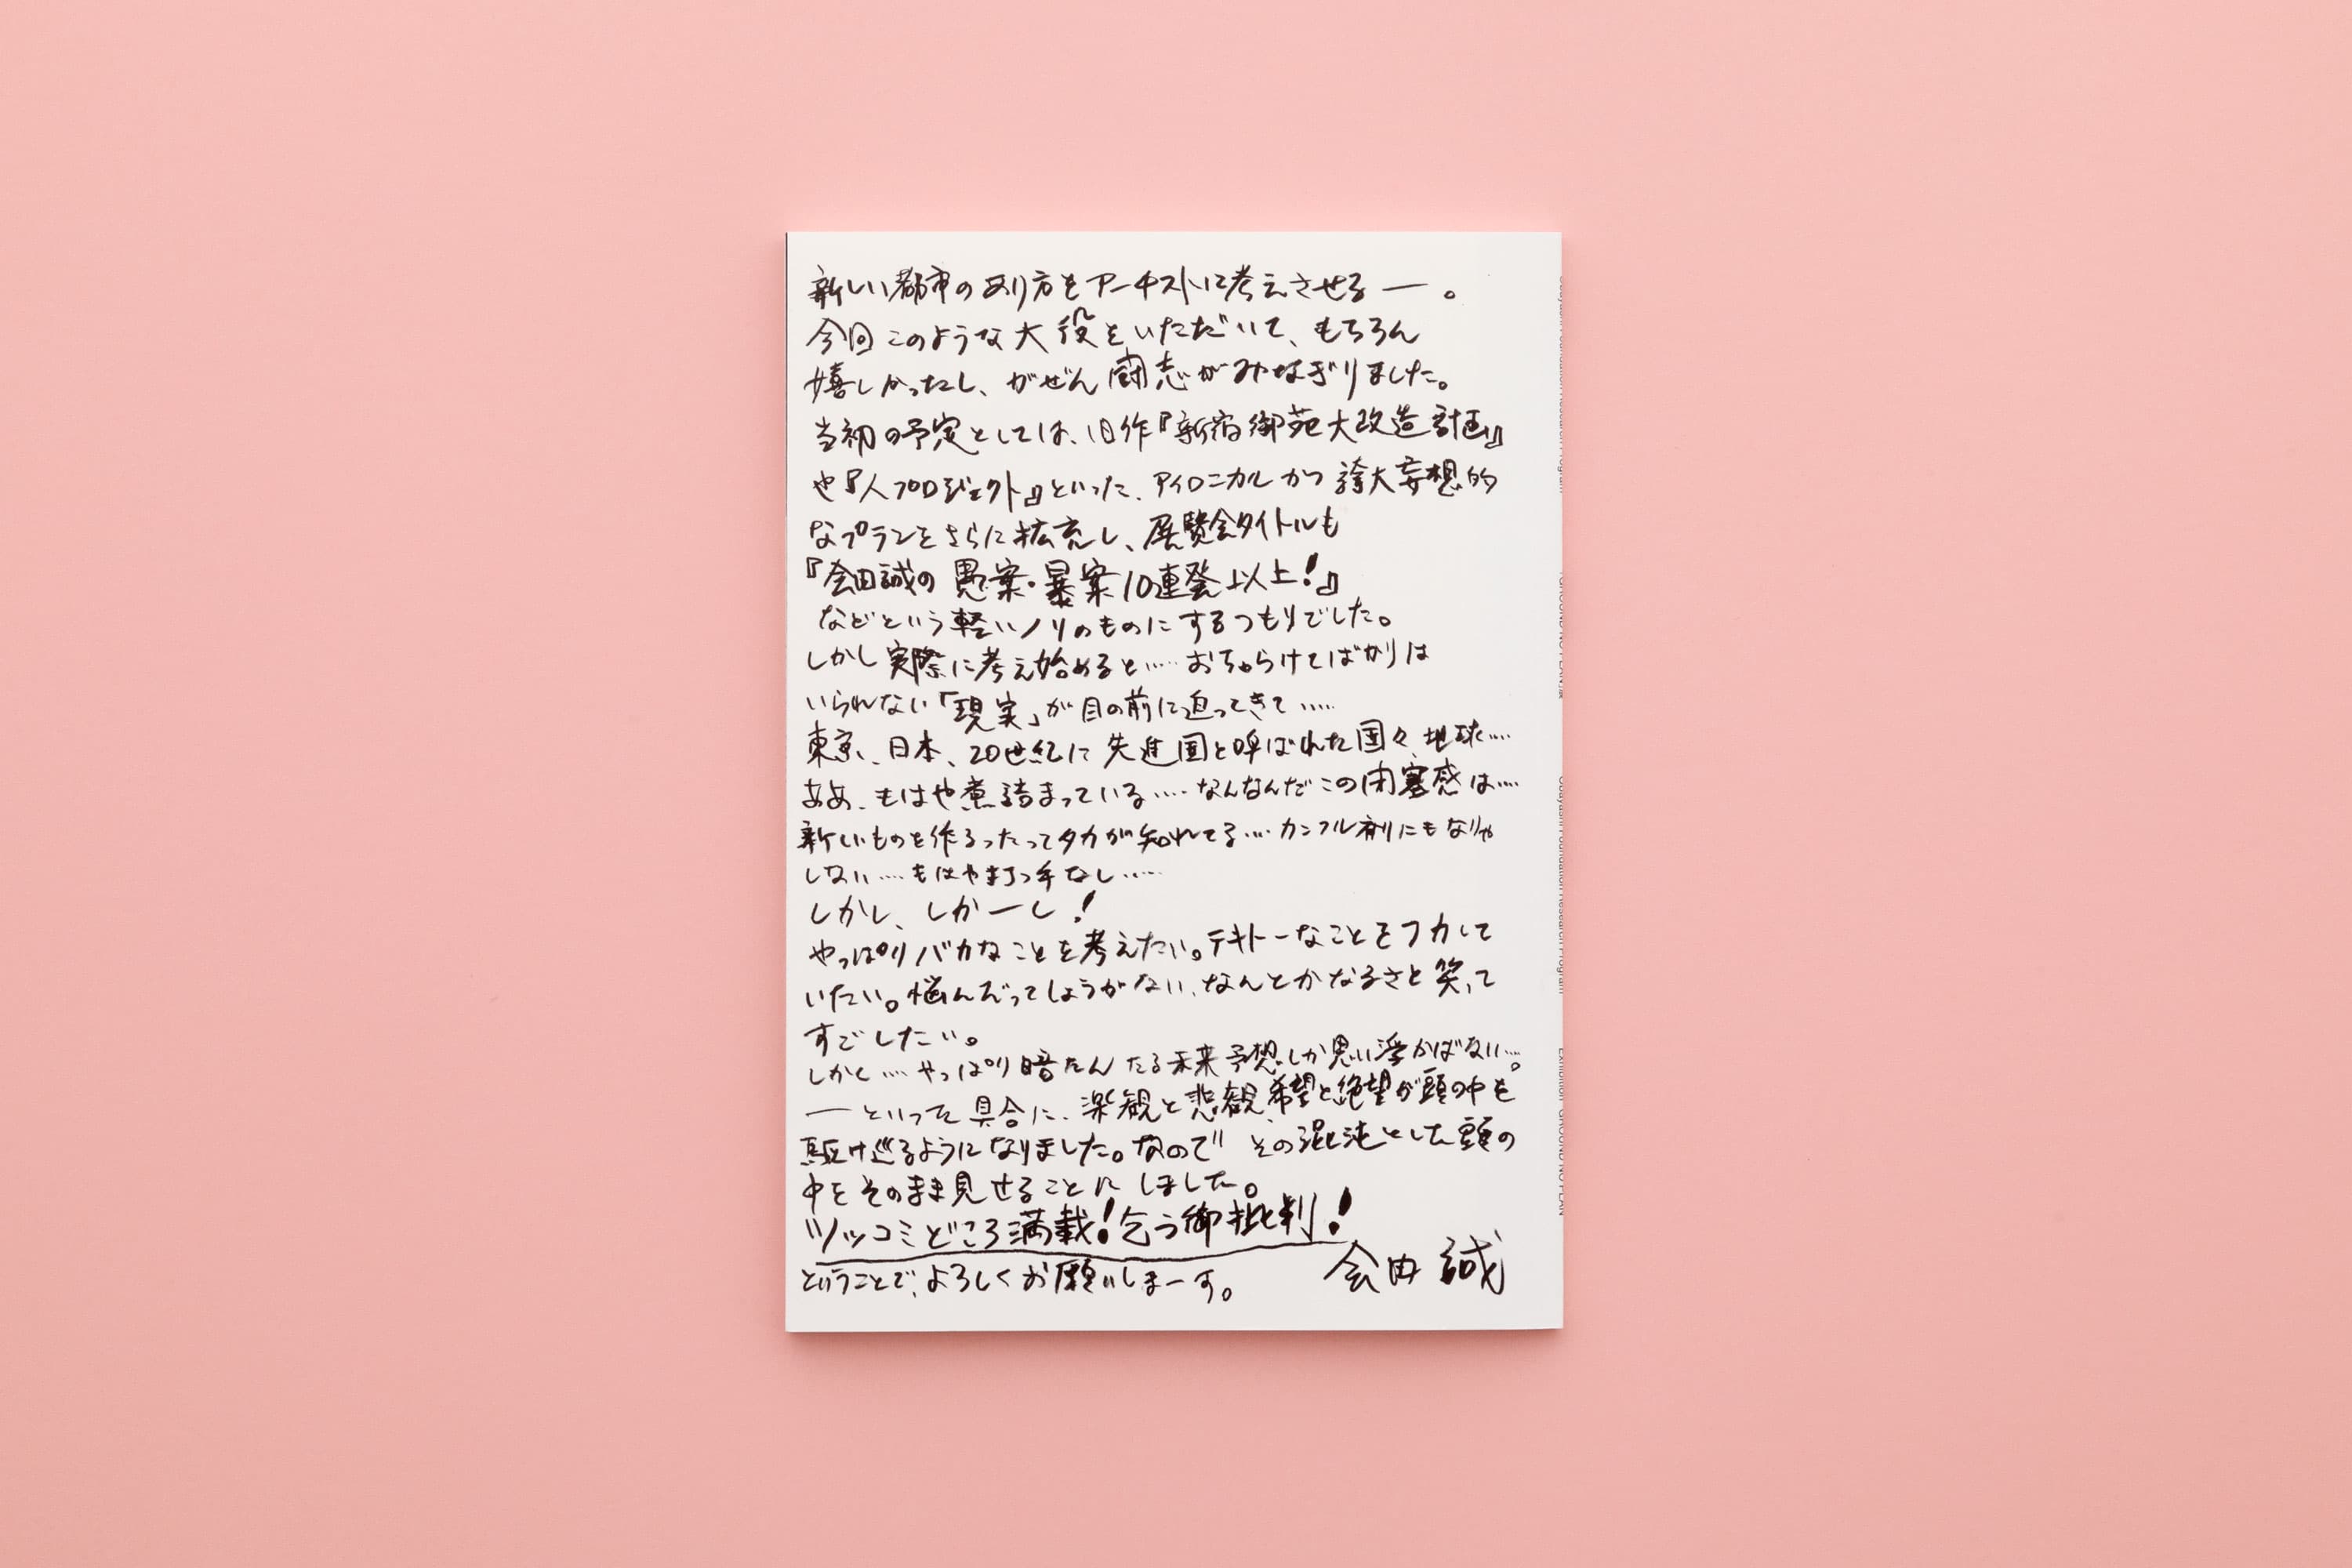 新しい都市のあり方をアーチストに考えさせる ― 。
今回このような大役をいただいて、もちろん
嬉しかったし、がぜん闘志がみなぎりました。
当初の予定としては、旧作『新宿御苑大改造計画』
や『人プロジェクト』といった、アイロニカルかつ誇大妄想的
なプランをさらに拡充し、展覧会タイトルも
『会田誠の愚案・暴案10連発以上!』
などという軽いノリのものにするつもりでした。
しかし実際に考え始めると……おちゃらけてばかりは
いられない「現実」が目の前に迫ってきて……
東京、日本、20世紀に先進国と呼ばれた国々、地球……
ああ、もはや煮詰まっている……なんなんだこの閉塞感は……
新しいものを作るったってタカが知れてる…カンフル剤にもなりゃ
しない……もはや打つ手なし……
しかし、しかーし!
やっぱりバカなことを考えたい。テキトーなことをフカして
いたい。悩んだってしょうがない、なんとかなるさと笑って
すごしたい。
しかし……やっぱり暗たんたる未来予想しか思い浮かばない…。
―といった具合に、楽観と悲観、希望と絶望が頭の中を
駆け巡るようになりました。なので その混沌とした頭の
中をそのまま見せることにしました。
ツッコミどころ満載!乞う御批判!
ということで、よろしくお願いしまーす。
会田 誠